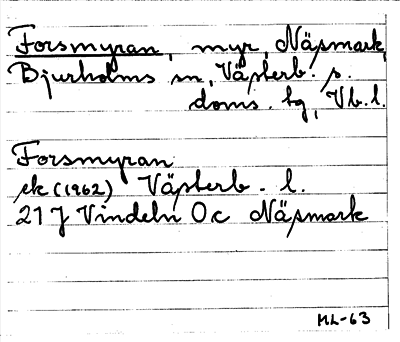 Forsmyran, myr, Näsmark,
Bjurholms sn, Västerb. s.
doms. tg, Vb. l.
Forsmyran
ek (1962) Västerb. l.
21 J Vindeln 0 c Näsmark
ML-63